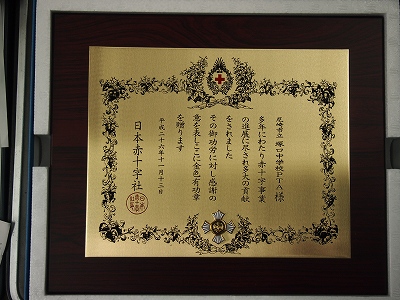 尼崎市立 塚口中学校PTA 様
多年にわたり赤十字事業
の進展に尽され多大の貢献
をされました
その御功労に対し感謝の
意を表しここに金色有功章
を贈ります
平成二十六年十一月十三日
日本赤十字社